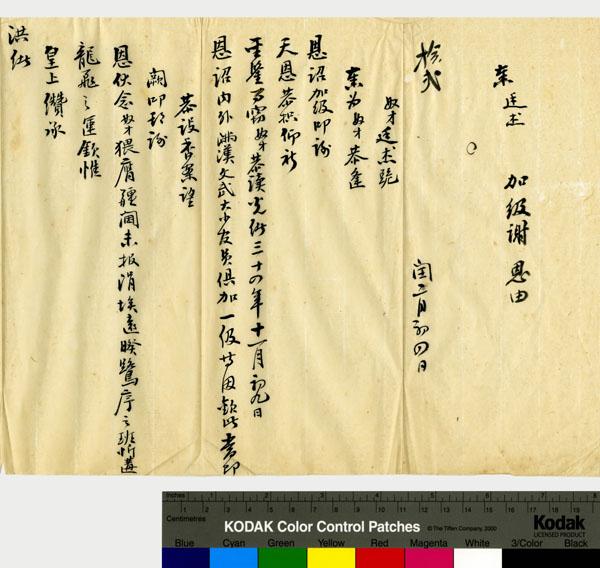 奏 廷杰 加級謝 恩由
閏二月初四日
奴才廷杰跪
奏為奴才恭逢
恩詔加級叩謝
天恩恭摺仰祈
聖鑒事竊奴才恭讀光緒三十四年十一月初九日
恩詔內外滿漢文武大小各員俱加一級等因欽此當即
恭設香案望
闕叩頭謝
恩伏念奴才猥膺疆閫未報涓埃遠暌鷺序之班忻遘
龍飛之運欽惟
皇上纘承
洪緒
Inches
Centimetres
KODAK Color Control Patches
© The Tiffen Company, 2000
Kodak
LICENSED PRODUCT
Blue Cyan Green Yellow Red Magenta White 3/Color Black